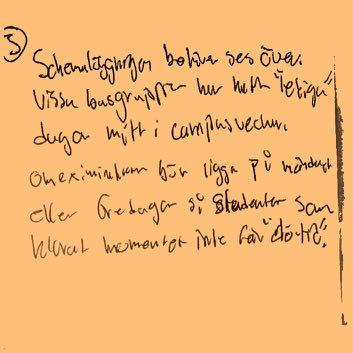 5) Schemaläggningen behöver ses över.
Vissa basgrupper har haft "lediga"
dagar mitt i campusveckor.
omexamination bör ligga på måndagar
eller fredagar så studenter som
klarat momentet inte får "dötid".